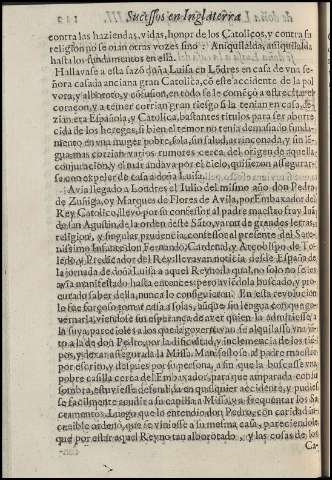 Sucessos en Inglaterra
contra las haziendas, vidas, honor de los Catolicos, y contra su
religion no se oian otras vozes sino: Aniquilalda, aniquilalda
hasta los fundamentos en ella.
Hallavase a esta sazõ doña Luisa en Lõdres en casa de vna se-
ñora casada anciana gran Catolica, cõ este accidente de la pol
vora, y alboroto, y cõfusion, en todo se le començò a estrechar el
coraçon, y a temer corrian gran riesgo si la tenian en casa, de-
zian era Española, y Catolica, bastantes titulos para ser aborre
cida de los hereges, si bien el temor no tenia demasiado funda-
mento en vna muger pobre, sola, sin salud, arrinconada, y sin lẽ-
gua, mas corrian varios rumores cerca del origen de aquella
conjuracion, y el mas andava por el cielo, quisieron assegurar-
se con expeler de casa a doña Luisa.
Avia llegado a Londres el Julio del mismo año don Pedro
de Zuñiga, oy Marques de Flores de Avila, por Embaxador del
Rey Catolico, llevò por su confessor al padre maestro fray Juã
de san Agustin, de la orden deste Sãto, varon de grandes letras,
religion, y singular prudencia, confessor al presente del Sere-
nissimo Infante don Fernando, Cardenal, y Arçobispo de To-
ledo, y Predicador del Rey, llevavan noticia desde España de
la jornada de doña Luisa a aquel Reyno, la qual no solo no se
avia manifestado hasta entonces, pero aviẽdola buscado, y pro-
curado saber della, nunca lo consiguieron. En esta revolucion
le fue forçoso tomar casa a solas, aũque sin lengua con que go-
vernarla, viendose sin esperança de aver quien la admitiesse a
la suya, pareciòles a los que la governavan se alquilasse vna jun-
to a la de don Pedro, por la dificultad, y inclemencia de los tiẽ-
pos, y dexar assegurada la Missa. Manifestose al padre maestro
por escrito, y despues por su persona, a fin que la buscasse vna
pobre casilla cerca del Embaxador, para que amparada con su
sombra, estuviesse defendida en qualquier accidente, y pudies
se facilmente acudir a su capilla a Missa, y a frequentar los Sa
cramentos. Luego que lo entendio don Pedro, con caridad in-
creible ordenò, que se viniesse a su mesma casa, pareciendole
que por estar aquel Reyno tan alborotado, y las cosas de los
Ca-